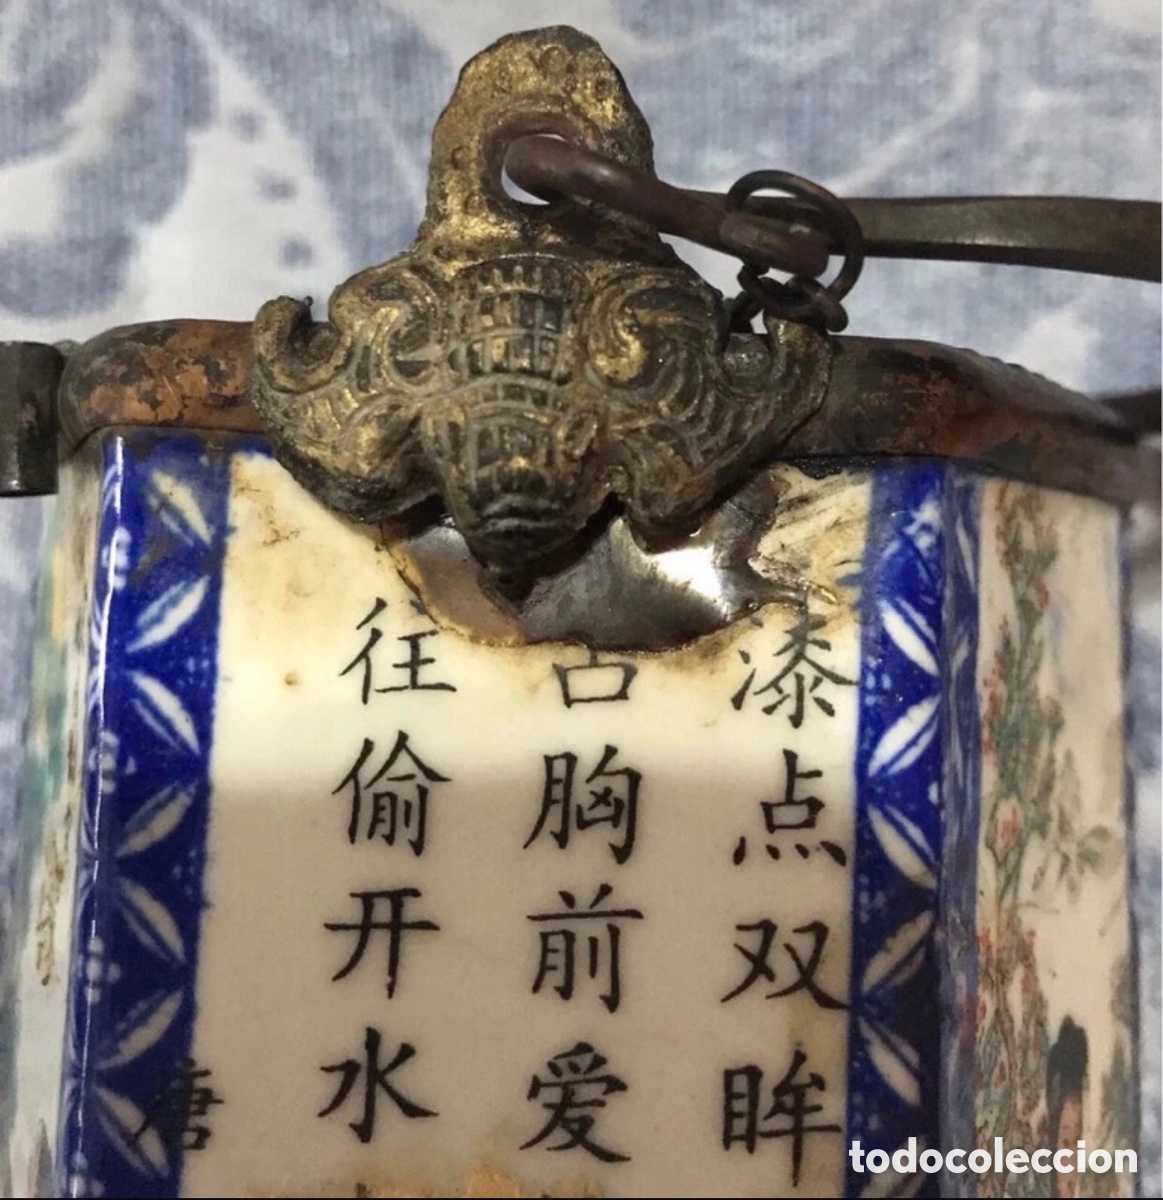 漆点双眸
占胸前爱
往偷开水
唐
todocoleccion